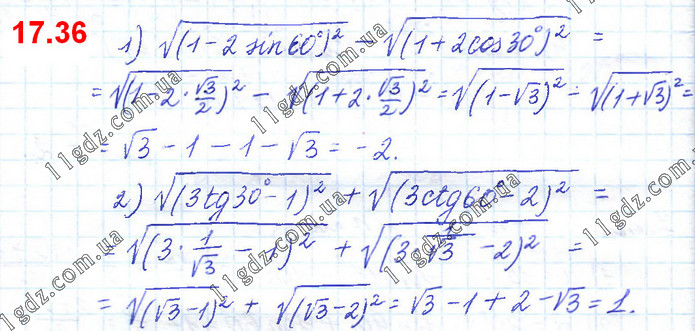 17.36
1) √(1-2sin60°)² - √(1+2cos30°)² =
= √(1-2·√3/2)² - √(1+2·√3/2)² = √(1-√3)² - √(1+√3)² =
= √3-1-1-√3 = -2.
2) √(3tg30°-1)² + √(3ctg60°-2)² =
= √(3·1/√3 - 1)² + √(3·1/√3 - 2)² =
= √(√3-1)² + √(√3-2)² = √3-1+2-√3 = 1.
11gdz.com.ua
11gdz.com.ua
11gdz.com.ua
11gdz.com.ua
11gdz.com.ua
11gdz.com.ua